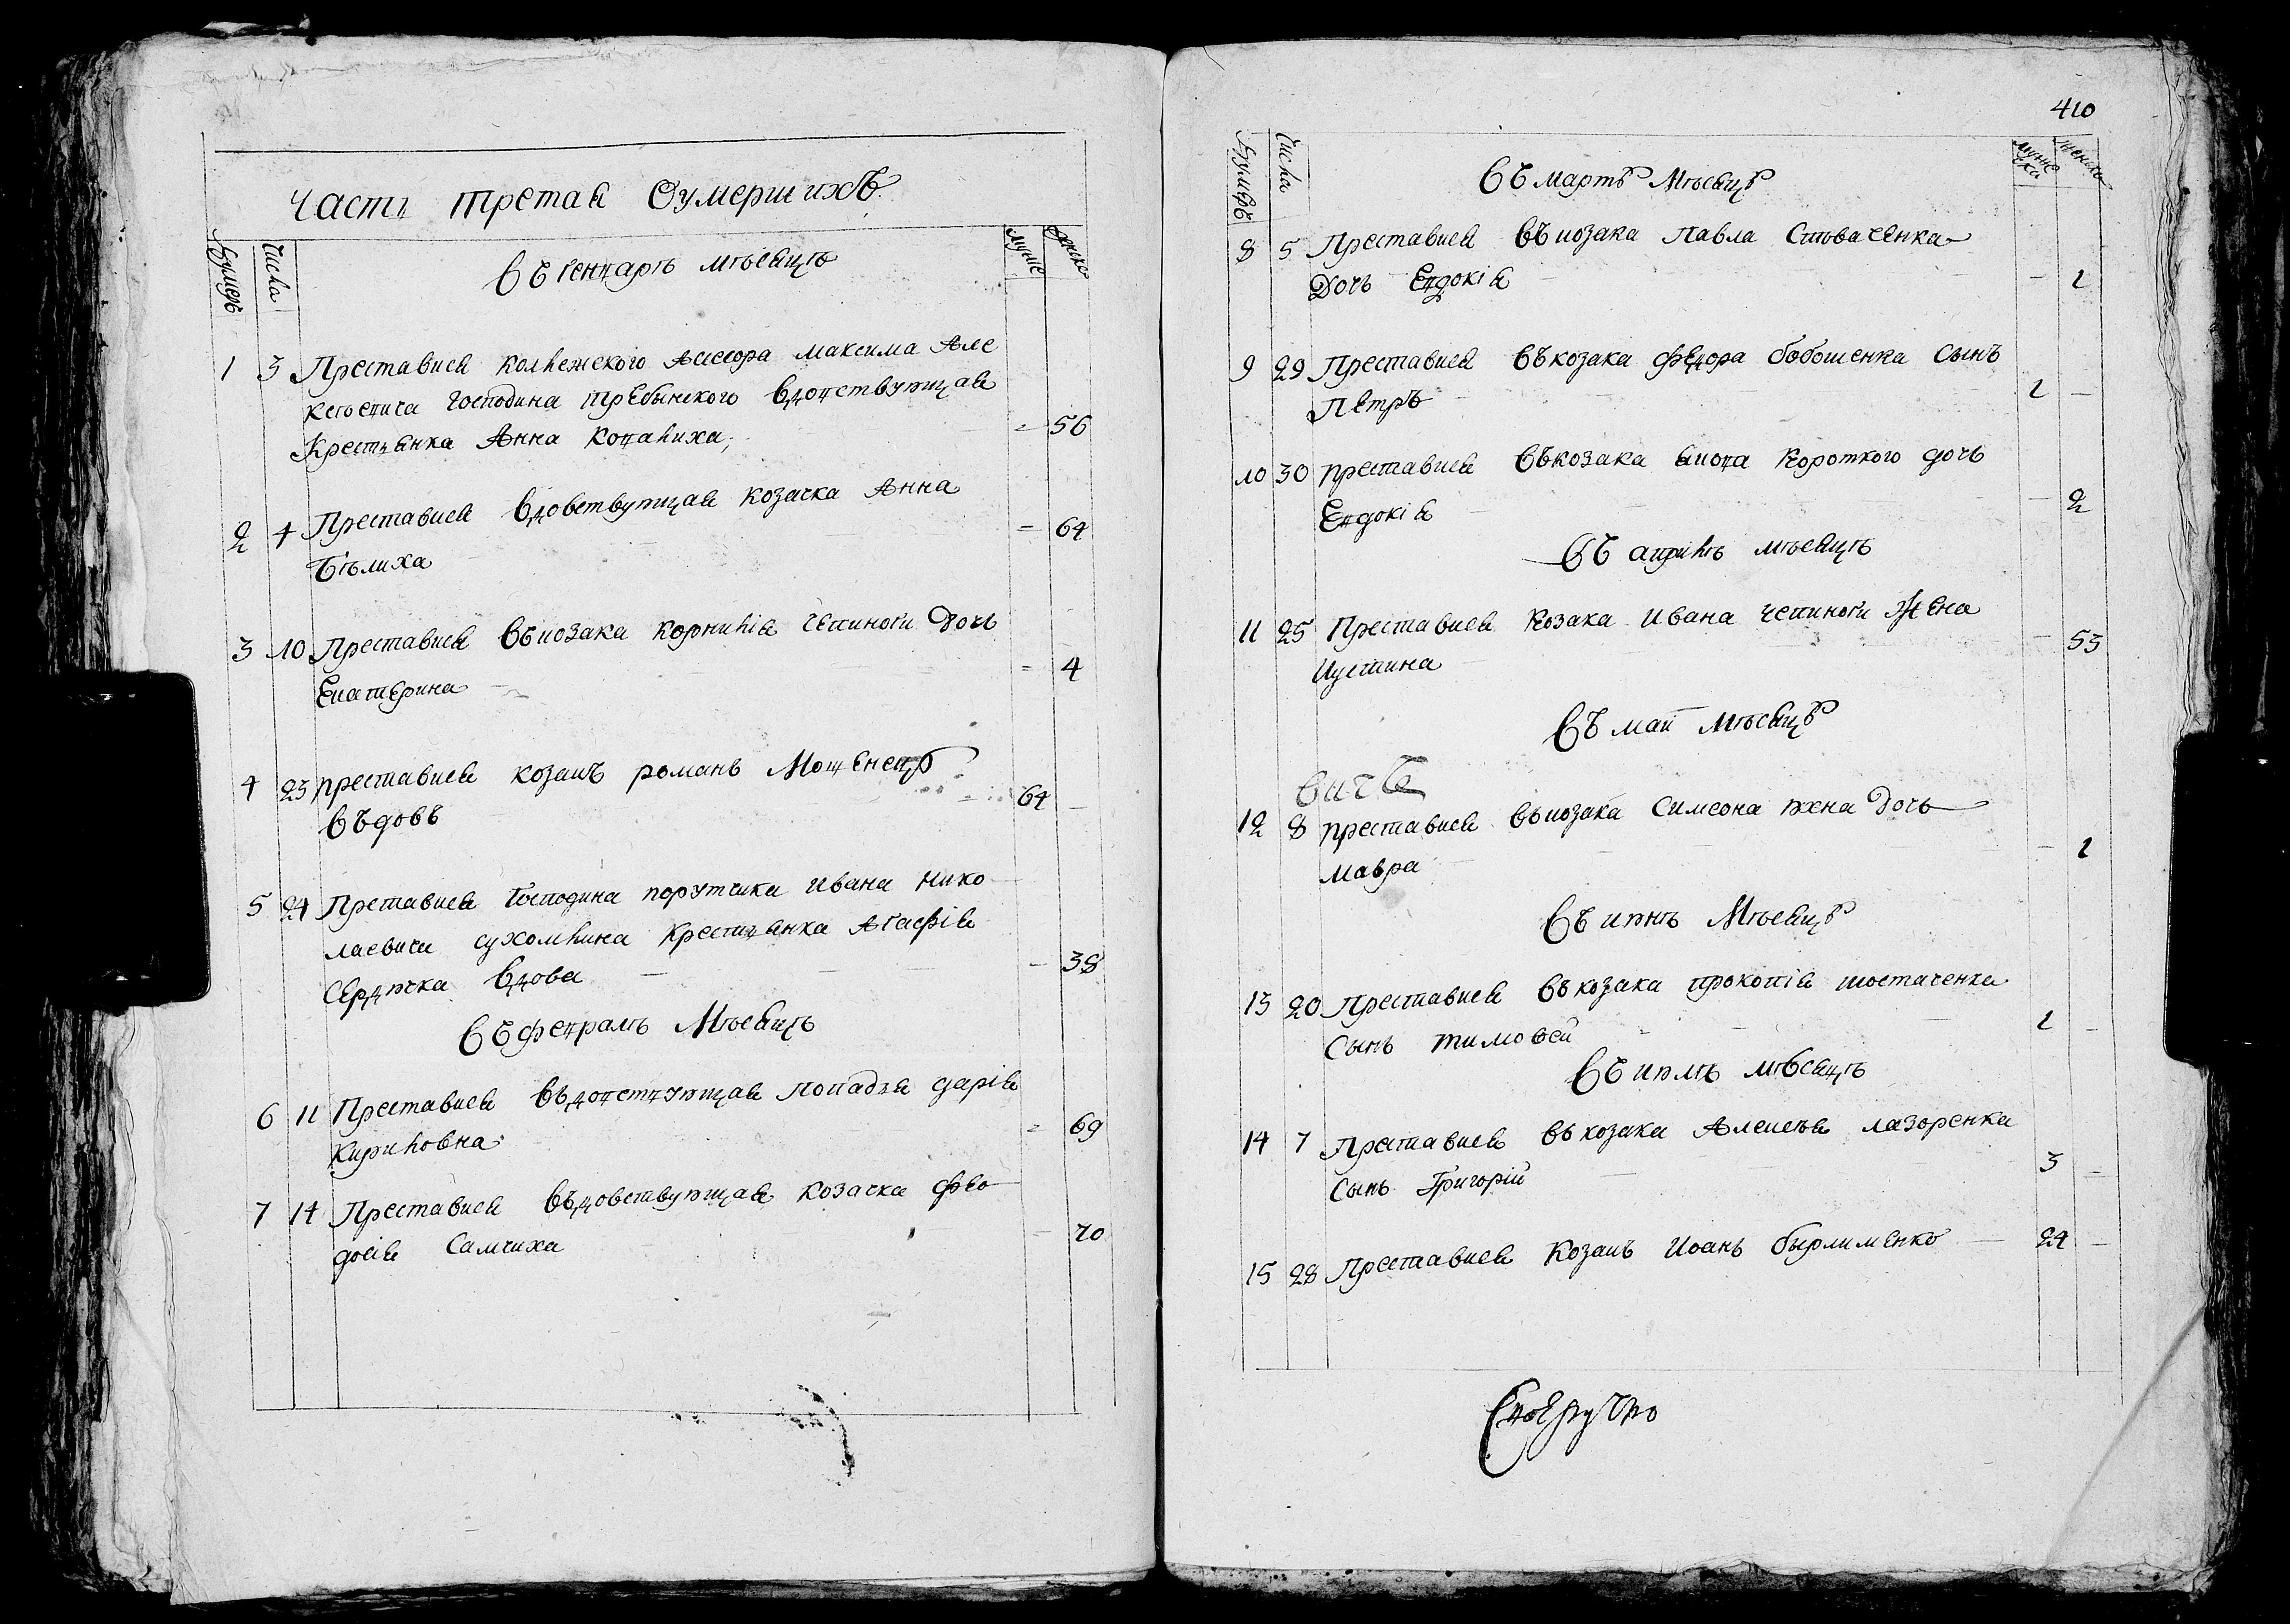 часть третая Оумершихъ
Нумеръ
Числа
Въ генваръ мѣсяцѣ
Муже
Женска
1 3 Преставися колежского Асесора Максима Але
ксѣевича Господина Требинского вдовствующая
Крестьянка Анна Ковалиха; = 56
2 4 Преставися вдовствующая козачка Анна
Бѣлиха = 64
3 10 Преставися въкозака Корнилія Чепиноги Дочь
Екатерина = 4
4 23 преставися козакъ романъ Мощенецъ
въдовъ 64 –
5 24 Преставися Господина порутчика Ивана Нико
лаевича Сухомлина Крестьянка Агафія
Сердючка вдова – 38
Въ февралѣ Мѣсяцѣ
6 11 Преставися въдовствующая попадья дарія
Кириловна = 69
7 14 Преставися въдовствующая козачка Фео
досія Самчиха – 70
410
Нумеръ
Числа
Въ мартѣ Мѣсяцѣ
Муже
ска
Женска
8 5 Преставися въкозака Павла Дочь Евдокія – 1
9 29 Преставися въкозака Федора бобошенка Сынъ
Петръ 1 –
10 30 преставися въкозака якова Короткого дочь
Евдокія – 2
Въ априлѣ мѣсяцѣ
11 25 Преставися Козака Ивана чепиноги Жена
Иустина – 53
Въ май мѣсяцѣ
12 8 преставися въкозака Симеона юхна Дочь
мавра – 1
Въ июнѣ Мѣсяцѣ
13 20 Преставися въкозака прокопія шостаченка
Сынъ тимоѳей 1 –
Въ июлѣ мѣсяцѣ
14 7 Преставися въкозака Алексѣя лазоренка
Сынъ Григорій 3 –
15 28 Преставися Козакъ Иоанъ бырлименко 24 –